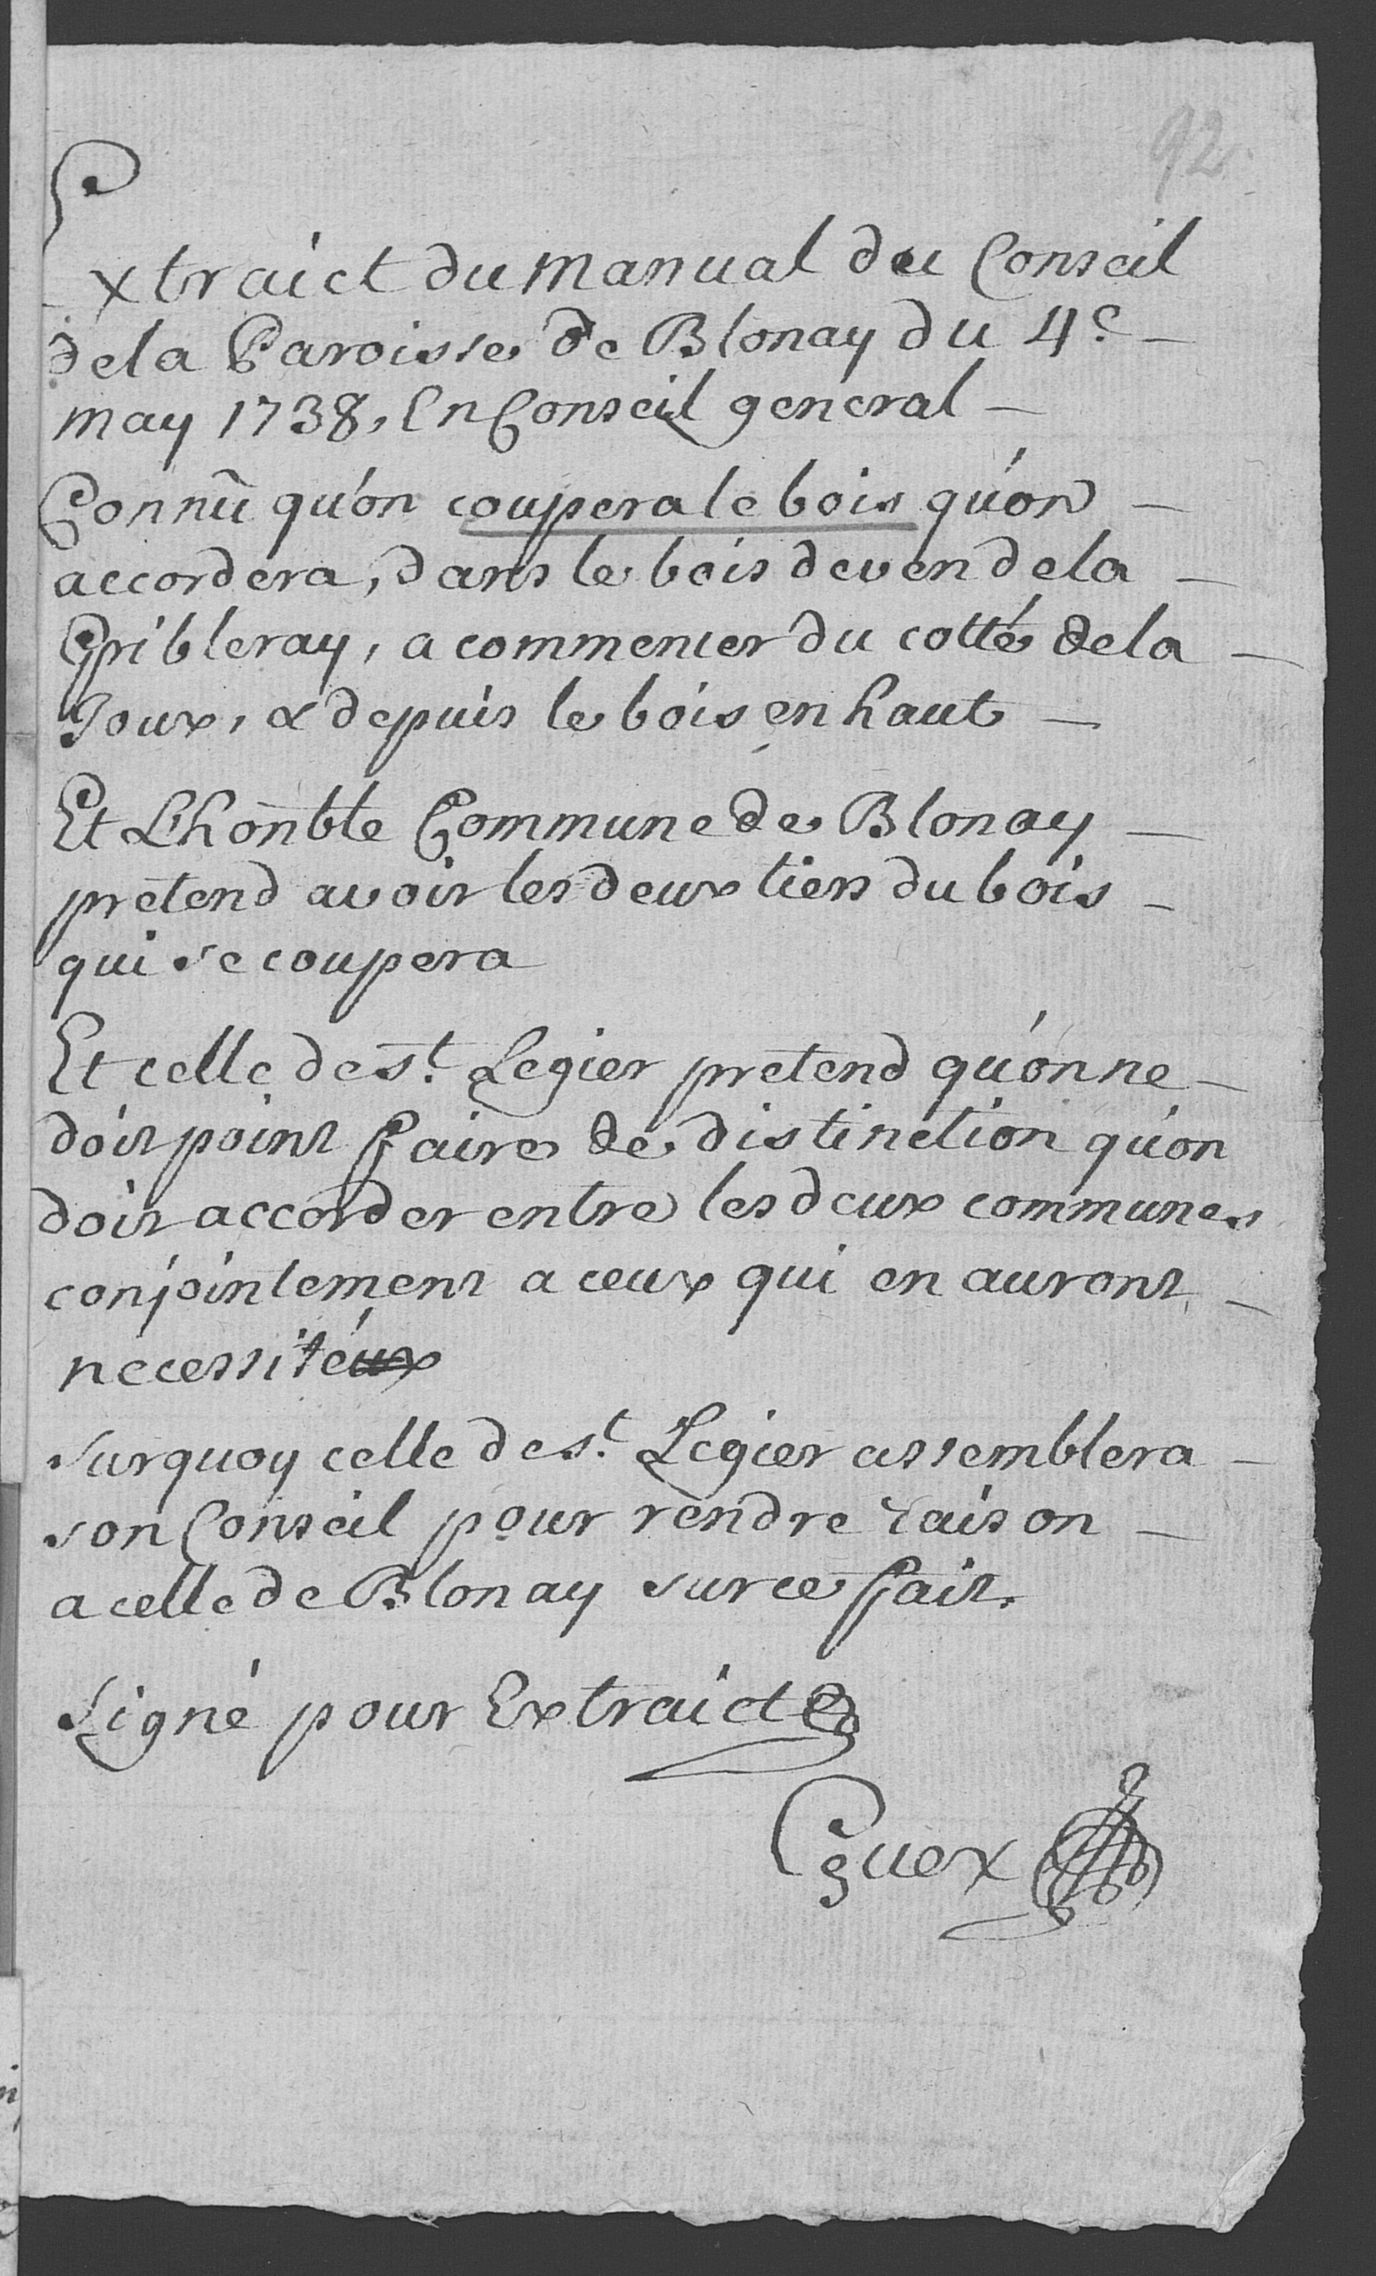 92
Extraict du Manual du Conseil
de la Paroisse de Blonay du 4e
may 1738, En Conseil general
Connu qu'on coupera le bois qu'on
accordera, dans le bois deven de la
Gribleray, a commencer du cotté de la
Joux, & depuis le bois en haut
Et L'honble Commune de Blonay
pretend avoir les deux tiers du bois
qui se coupera
Et celle de St. Legier pretend qu'on ne
doit point faire de distinction qu'on
doit accorder entre les deux communes
conjointement a ceux qui en auront
necessité
surquoy celle de St. Legier assemblera
son Conseil pour rendre raison
a celle de Blonay sur ce fait.
Signé pour Extraict
Guex